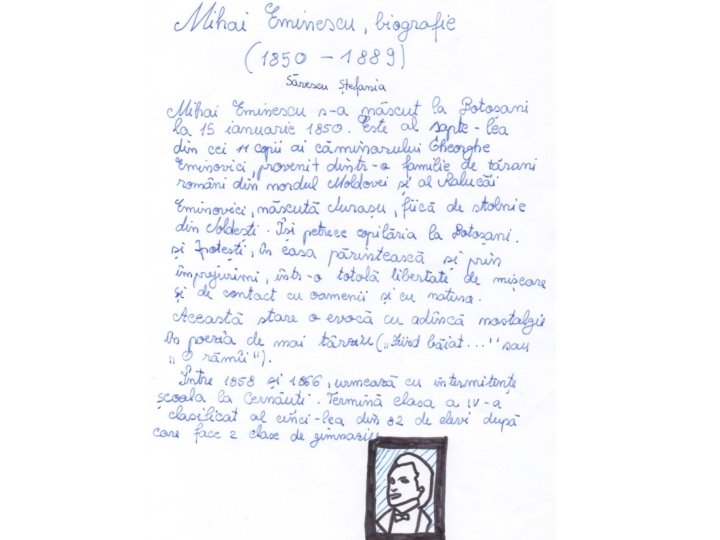 Mihai Eminescu, biografie
(1850 - 1889)
Sărescu Ștefania
Mihai Eminescu s-a născut la Botosani
la 15 ianuarie 1850. Este al sapte-lea
din cei 11 copii ai căminarului Gheorghe
Eminovici, provenit dintr-o familie de tărani
români din nordul Moldovei și al Ralucăi
Eminovici, născută Jurașu, fiică de stolnic
din Joldesti. Își petrece copilăria la Botoșani.
și Ipotești, în casa părintească și prin
împrejurimi, într-o totolă libertate de mișcare
și de contact cu oamenii și cu natura.
Această stare o evocă cu adîncă nostalgie
în poezia de mai târziu („Fiind băiat..." sau
„O rămîi").
Între 1858 și 1866, urmează cu intermitențe
școala la Cernăuti. Termină clasa a IV-a
clasificat al cinci-lea din 82 de elevi după
care face 2 clase de gimnaziu